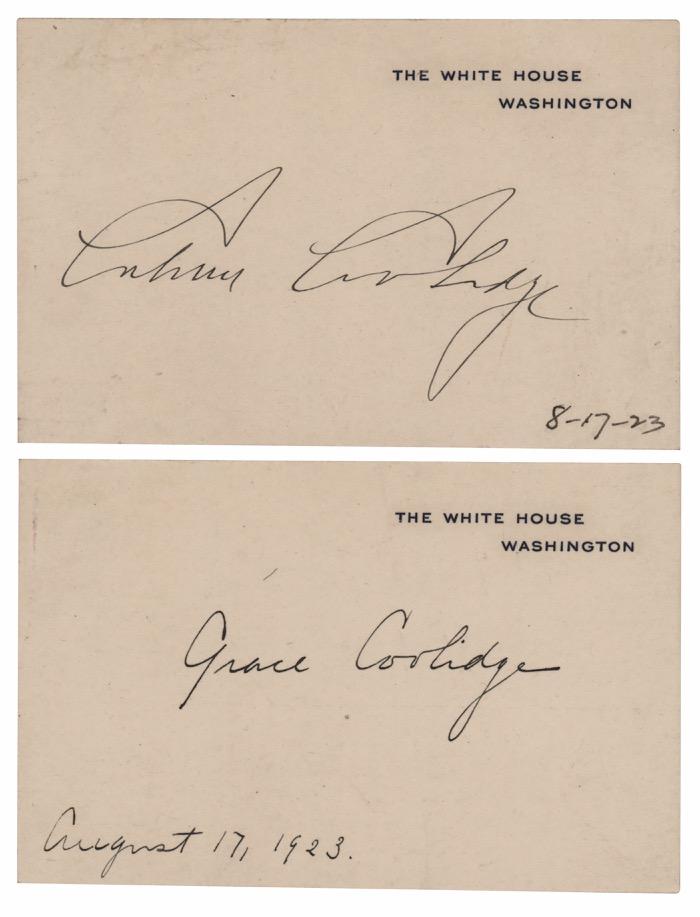 THE WHITE HOUSE
WASHINGTON
Calvin Coolidge
8-17-23
THE WHITE HOUSE
WASHINGTON
Grace Coolidge
August 17, 1923.